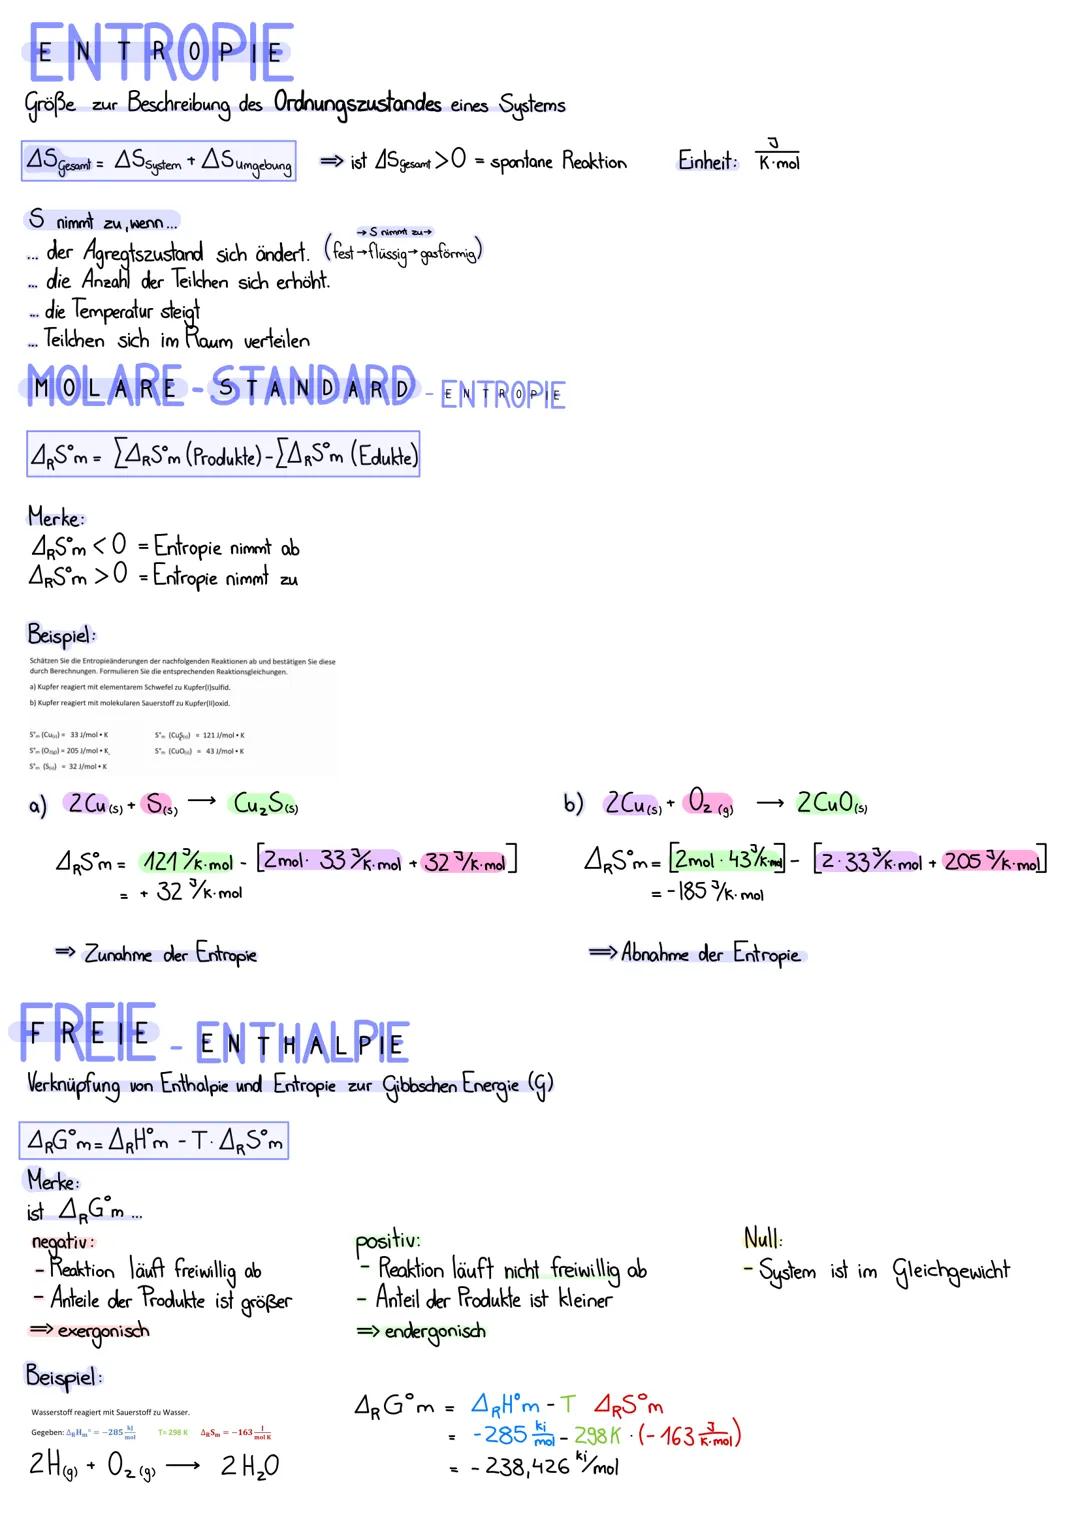 ENTROPIE
Größe zur Beschreibung des Ordnungszustandes eines Systems
ΔS Gesamt = ΔS System + ΔS Umgebung ⇒ ist ΔS Gesamt > 0 = spontane Reaktion Einheit: J/K·mol
S nimmt zu, wenn...
→ S nimmt zu →
... der Agregtszustand sich ändert. (fest → flüssig → gasförmig)
... die Anzahl der Teilchen sich erhöht.
... die Temperatur steigt
... Teilchen sich im Raum verteilen
MOLARE-STANDARD-ENTROPIE
ΔRS°m = ∑ΔRS°m (Produkte) - ∑ΔRS°m (Edukte)
Merke:
ΔRS°m < 0 = Entropie nimmt ab
ΔRS°m > 0 = Entropie nimmt zu
Beispiel:
Schätzen Sie die Entropieänderungen der nachfolgenden Reaktionen ab und bestätigen Sie diese
durch Berechnungen. Formulieren Sie die entsprechenden Reaktionsgleichungen.
a) Kupfer reagiert mit elementarem Schwefel zu Kupfer(I)sulfid.
b) Kupfer reagiert mit molekularen Sauerstoff zu Kupfer(II)oxid.
S°m (Cu(s)) = 33 J/mol • K S°m (CuS(s)) = 121 J/mol • K
S°m (O2(g)) = 205 J/mol • K S°m (CuO(s)) = 43 J/mol • K
S°m (S(s)) = 32 J/mol • K
a) 2Cu(s) + S(s) → Cu₂S(s)
ΔRS°m = 121 J/K·mol - [2mol · 33 J/K·mol + 32 J/K·mol]
= + 32 J/K·mol
⇒ Zunahme der Entropie
b) 2Cu(s) + O₂(g) → 2CuO(s)
ΔRS°m = [2mol · 43 J/K·mol] - [2·33 J/K·mol + 205 J/K·mol]
= -185 J/K·mol
⇒ Abnahme der Entropie
FREIE-ENTHALPIE
Verknüpfung von Enthalpie und Entropie zur Gibbschen Energie (G)
ΔRG°m = ΔRH°m - T · ΔRS°m
Merke:
ist ΔRG°m ...
negativ:
- Reaktion läuft freiwillig ab
- Anteile der Produkte ist größer
⇒ exergonisch
positiv:
- Reaktion läuft nicht freiwillig ab
- Anteil der Produkte ist kleiner
⇒ endergonisch
Null:
- System ist im Gleichgewicht
Beispiel:
Wasserstoff reagiert mit Sauerstoff zu Wasser.
Gegeben: ΔRHm° = −285 kJ/mol T= 298 K ΔRSm = −163 J/mol K
2H(g) + O₂(g) → 2H₂O
ΔRG°m = ΔRH°m - T ΔRS°m
= -285 kj/mol - 298K · (-163 J/K·mol)
= - 238,426 kj/mol